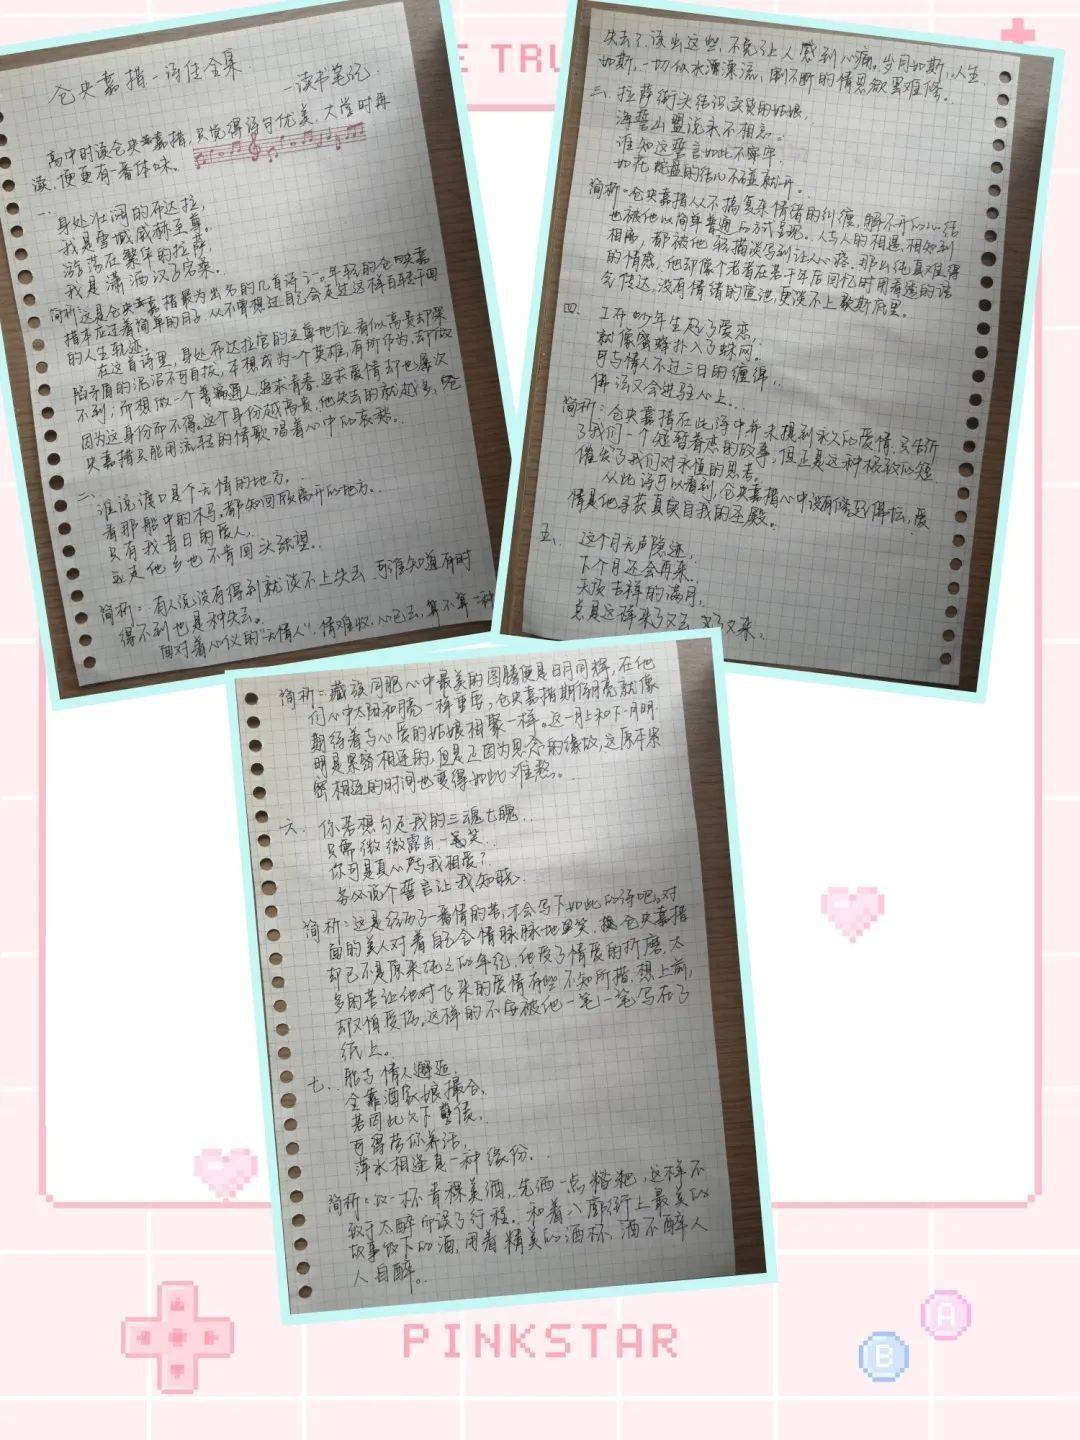 仓央嘉措·诗传全集
—读书笔记.
高中时读仓央嘉措,只觉得诗句优美,大学时再
读,便更有一番体味。
一.
身处壮阔的布达拉,
我是雪域威赫至尊。
游荡在繁华的拉萨,
我是潇洒汉子宕桑。
简析:这是仓央嘉措最为出名的几首诗之一。年轻的仓央嘉
措本应过着简单的日子,从不曾想过自己会走过这样
的人生轨迹。
在这首诗里,身处布达拉宫的至尊地位,看似高贵却深
陷矛盾的泥沼不可自拔,本想成为一个英雄,有所作为,却做
不到;所想做一个普通人,追求青春,追求爱情却也屡次
因为这身份而不得。这个身份越高贵,他失去的就越多,仓
央嘉措只能用流轻的情歌唱着心中的哀愁..
二.
谁说渡口是个无情的地方.
看那船中的木马,都知回放离开的地方..
只有我昔日的爱人,
远走他乡也不肯回头张望..
简析:有人说没有得到就谈不上失去,可谁知道有时
得不到也是种失去。
面对着心仪的“无情人”,情难收,心已去,算不算一种
失去了,读出这些,不免让人感到心痛。岁月如斯,人生
如斯,一切似水潺潺流,割不断的情思欲罢难修。
三.拉萨街头结识交货的姑娘,
海誓山盟说永不相忘。
谁知这誓言如此不牢牢,
如花蛇盘的结儿不碰就开。
简析:仓央嘉措从不搞复杂情绪的纠缠,解不开的心结
也被他以简单普通的方式呈现。人与人的相遇、相知到
相离,都被他轻描淡写到让人心疼。那些纯真难得
的情感,他却像个老者在若干年后回忆时用着远的语
气传达,没有情绪的宣泄,更谈不上歇斯底里。
四.
工布少年生起了爱恋,
就像蜜蜂扑入了蛛网。
可与情人不过三日的缠绵,
佛法又会进驻心上..
简析:仓央嘉措在此诗中并未提到永久的爱情,只告诉
了我们一个短暂眷恋的故事,但正是这种极致的短
催发了我们对永恒的思考。
从此诗可以看到,仓央嘉措心中设有修远佛坛,爱
情是他寻获真实自我的圣殿。
五.
这个月无声隐迹,
下个月还会再来..
天顶吉祥的满月,
总是这样来了又去,去了又来..
简析:藏族同胞心中最美的图腾便是日月同辉,在他
们心中太阳和月亮一样重要,仓央嘉措期待月亮就像
期待着与心爱的姑娘相聚一样。这一月上和下一月明
明是紧密相连的,但是正因为思念的缘故,这原本紧
密相连的时间也变得如此难熬。
六.
你若想勾走我的三魂七魄..
只需微微露齿一笔笑..
你可是真心与我相爱?
务必说个誓言让我知晓.
简析:这是经历了一番情的苦,才会写下如此的诗吧。对
面的美人对着自己含情脉脉地笑,仓央嘉措
却已不是原来的年纪,他受了情爱的折磨,太
多的苦让他对飞来的爱情有些不知所措,想上前,
却又怕受伤。这样的不安被他一笔一笔写在了
纸上。
七.
能与情人邂逅,
全靠酒家娘撮合,
若因此欠下孽债,
可得劳你养活,
萍水相逢是一种缘份...
简析:以一杯青稞美酒,先洒一点糌粑,这样不
致于太醉而误了行程。和着八廓街上最美的
故事饮下的酒,用着精美的酒杯,酒不醉人
人自醉..
PINKSTAR
A
B